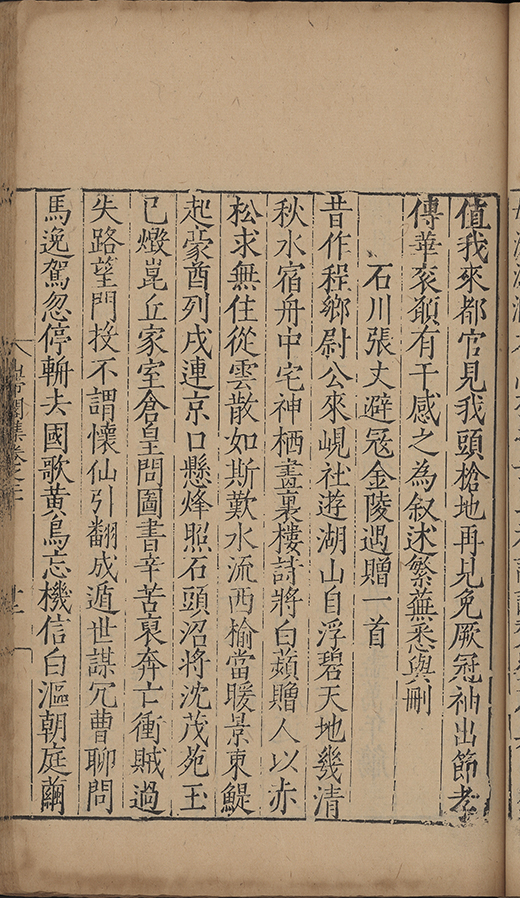 值我來都官見我頭槍地再兄免厥冠袖出節孝
傳華衮顏有干感之為叙述繁蕪悉與刪
石川張丈避冦金陵遇贈一首
昔作程鄉尉公來峴社遊湖山自浮碧天地幾清
秋水宿舟中宅神栖畫裏樓詩將白蘋贈人以赤
松求無住從雲散如斯歎水流西榆當暖景東鯷
起蒙酋列戍連京口懸烽照石頭沼將沈茂苑玉
已燬崑丘家室倉皇問圖書辛苦裒奔亡衝賊過
失路望門投不謂懷仙引翻成遁世謀冗曹聊問
馬逸駕忽停輈去國歌黃鳥忘機信白漚朝庭繭